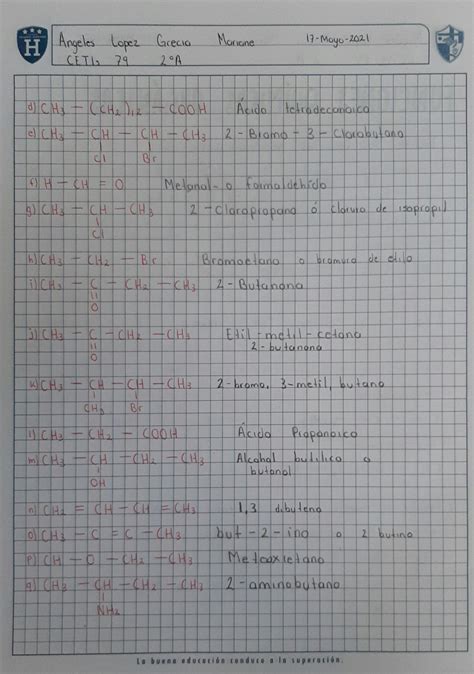 Angeles Lopez Grecia Mariane 17-Mayo-2021
CETis 79 2°A
d) CH3 — (CH2)12 — COOH Ácido tetradecanoico
e) CH3 — CH — CH — CH3 2-Bromo-3-Clorobutano
Cl Br
f) H — CH = O Metanal o formaldehído
g) CH3 — CH — CH3 2-Cloropropano ó cloruro de isopropil
Cl
h) CH3 — CH2 — Br Bromoetano o bromuro de etilo
i) CH3 — C — CH2 — CH3 2-Butanona
O
j) CH3 — C — CH2 — CH3 Etil-metil-cetona
O 2-butanona
k) CH3 — CH — CH — CH3 2-bromo, 3-metil, butano
CH3 Br
l) CH3 — CH2 — COOH Ácido Propanoico
m) CH3 — CH — CH2 — CH3 Alcohol butílico o
OH butanol
n) CH2 = CH — CH = CH3 1,3 dibuteno
o) CH3 — C = C — CH3 but-2-ino o 2 butino
p) CH — O — CH2 — CH3 Metoxietano
q) CH3 — CH — CH2 — CH3 2-aminobutano
NH2
La buena educación conduce a la superación.